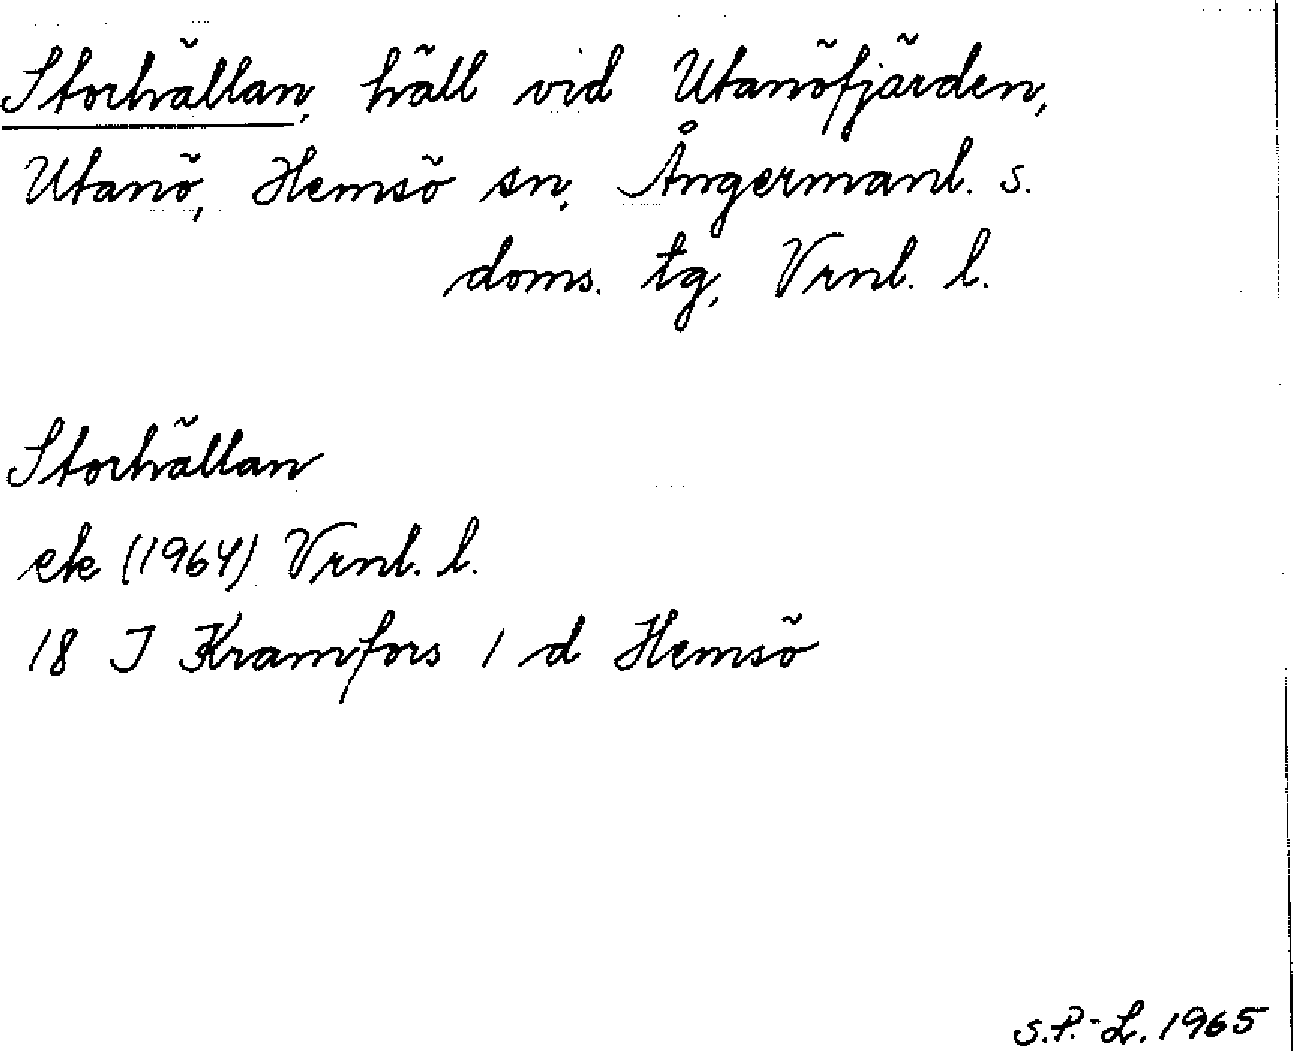 Storhällan, häll vid Utanöfjärden,
Utanö, Hemsö sn, Ångermanl. s.
doms. tg, Vrnl. l.
Storhällan
ek (1964) Vrnl. l.
18 J Kramfors 1 d Hemsö
S.P.-L. 1965